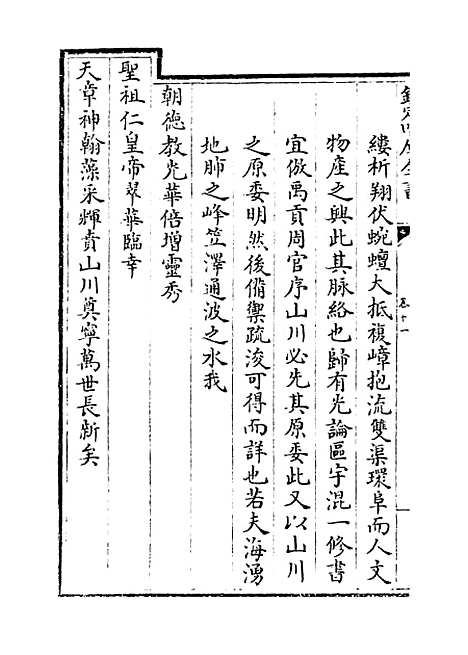 欽定四庫全書
卷十一
縷析翔伏蜿蟺大抵複嶂抱流雙渠環阜而人文
物產之興此其脉絡也歸有光論區宇混一修書
宜倣禹貢周官序山川必先其原委此又以山川
之原委明然後備禦疏浚可得而詳也若夫海湧
地肺之峰笠澤通波之水我
朝德教光華倍增靈秀
聖祖仁皇帝翠華臨幸
天章神翰藻采輝賁山川奠寧萬世長新矣